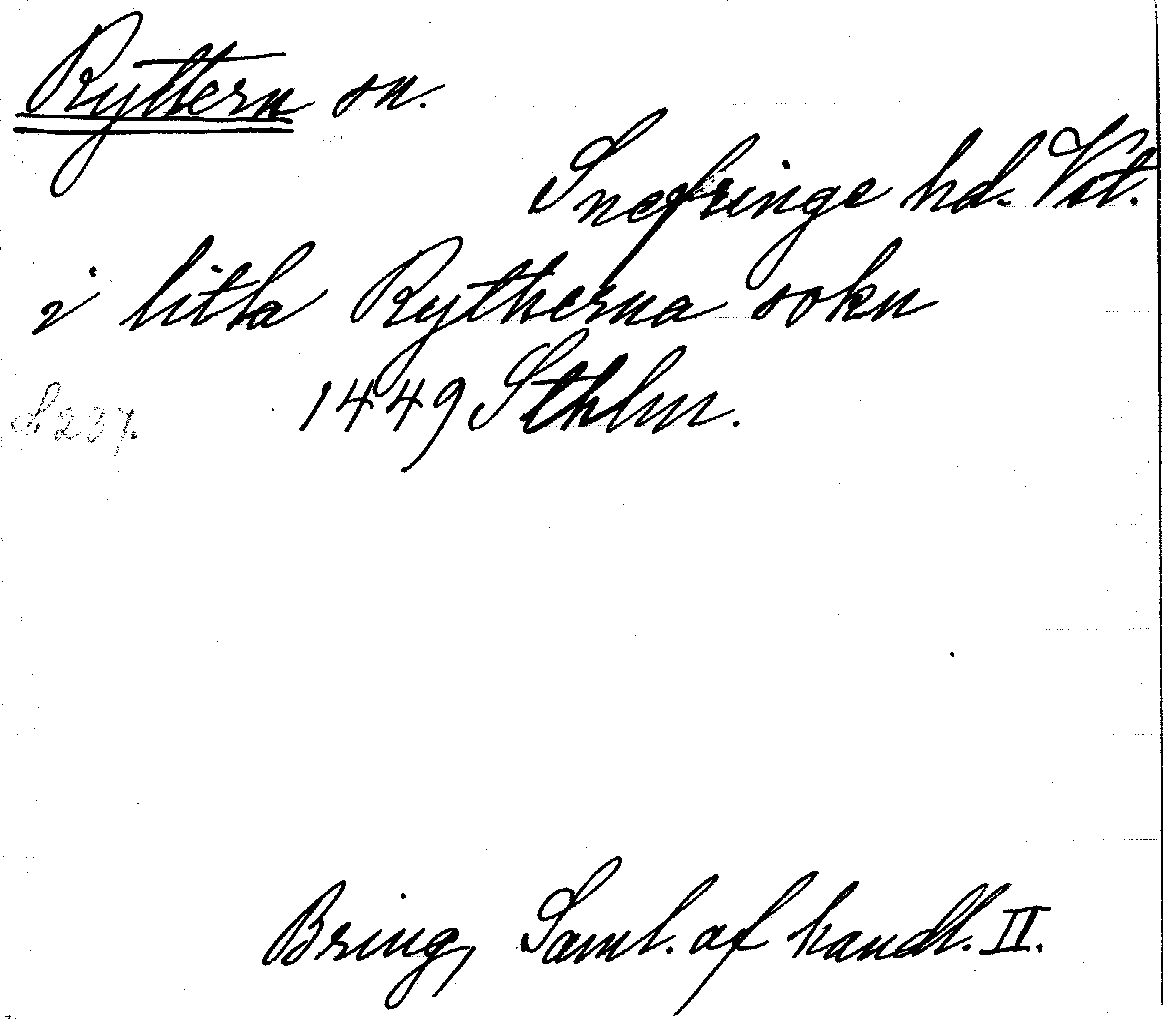 Ryttern sn.
Snefringe hd. Vst.
i litla Rytherna sokn
1449 Sthlm.
S 237.
Bring, Saml. af handl. II.